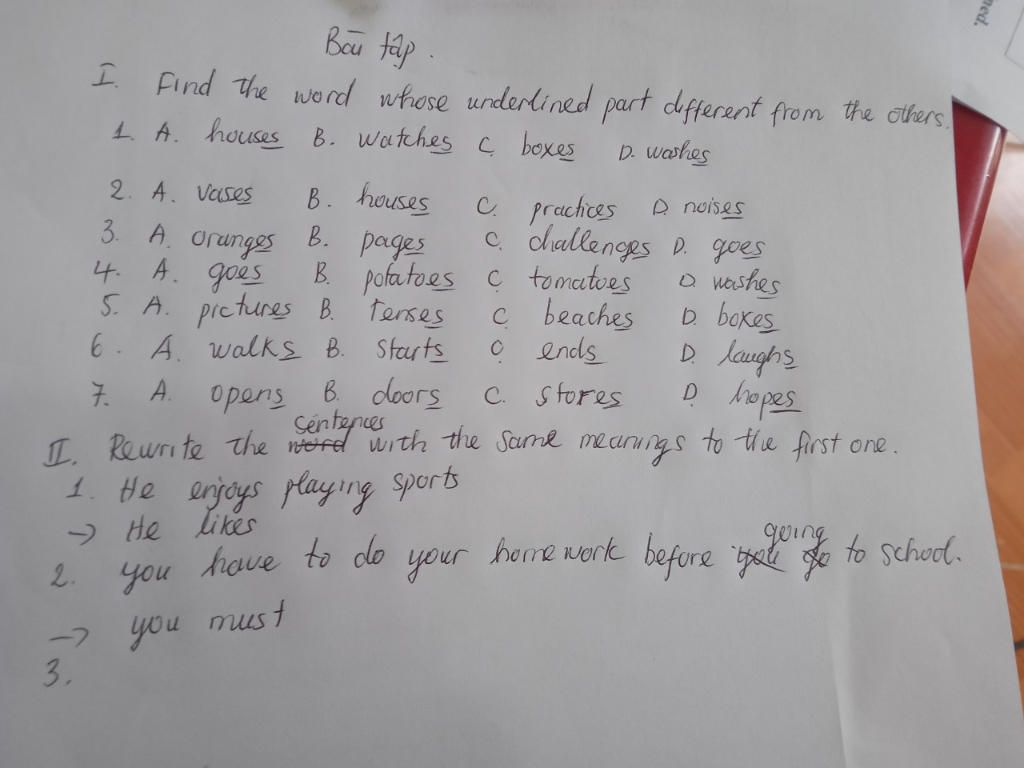 ned.
Bài tập.
I. Find the word whose underlined part different from the others.
1. A. houses B. watches C. boxes D. washes
2. A. vases B. houses C. practices D. noises
3. A. oranges B. pages C. challenges D. goes
4. A. goes B. potatoes C. tomatoes D. washes
5. A. pictures B. tenses C. beaches D. boxes
6. A. walks B. starts C. ends D. laughs
7. A. opens B. doors C. stores D. hopes
II. Rewrite the word sentences with the same meanings to the first one.
1. He enjoys playing sports
-> He likes
2. you have to do your homework before you go going to school.
-> you must
3.